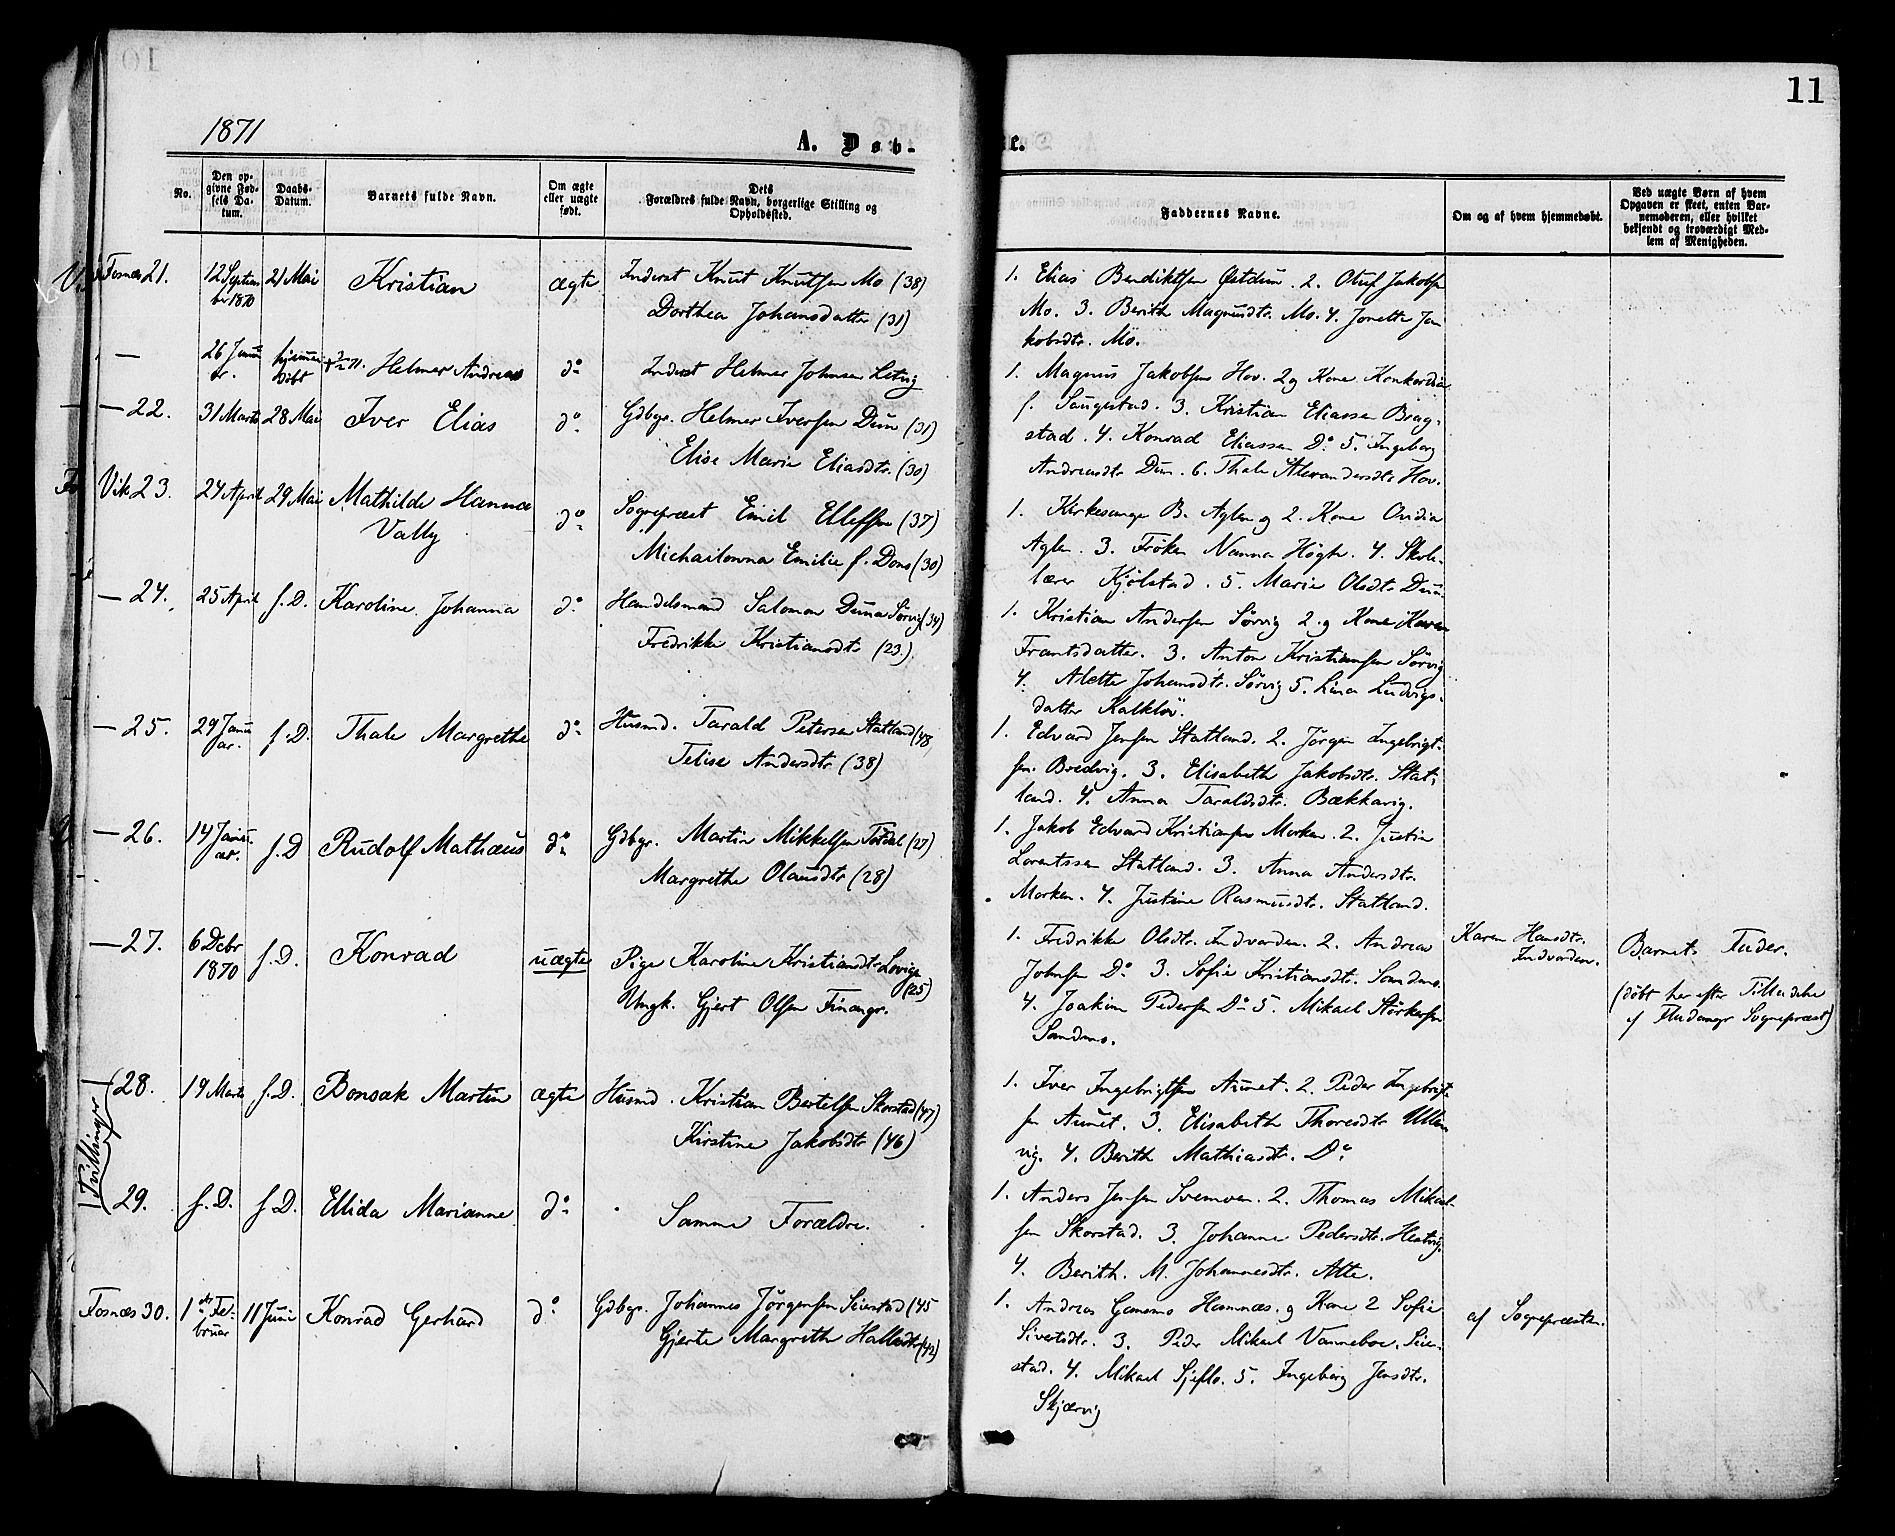 11
1871
A. Døb-
te.
No.
Den op-
givne Fød-
sels Da-
tum.
Daabs-
Datum.
Barnets fulde Navn.
Om ægte
eller uægte
født.
Dets
Forældres fulde Navn, borgerlige Stilling og
Opholdssted.
Faddernes Navne.
Om og af hvem hjemmedøbt.
Ved uægte Børn af hvem
Opgaven er skeet, enten Bar-
nemoderen, eller hvilket
bekjendt og troværdigt Med-
lem af Menigheden.
Fosnæs 21.
12 Septem
br 1870
21 Mai
Kristian
ægte
Inderst Knut Knutsen Mo (38)
Dorthea Johansdatter (31)
1. Elias Bendiktsen Østdun. 2. Oluf Jakobsen
Mo. 3. Berith Magnusdtr. Mo. 4. Jonetta Ja-
kobsdtr. Mo.
—
26 Janu
ar.
hjemme
døbt
Helmer Andreas
do
Inderst Helmer Johnsen Setvig
— 22.
31 Marts
28 Mai
Iver Elias
do
Gdbgr. Helmer Iversen Dun (31)
Elise Marie Eliasdtr. (30)
1. Magnus Jakobsen Hov. 2 og Kone Konkordia
f. Saugestad. 3. Kristian Eliassen Brag-
stad. 4. Konrad Eliassen Do 5. Ingeborg
Andreasdtr Dun. 6. Thale Alexandersdtr Hov.
Vik 23.
24 April
29 Mai
Mathilde Hanna
Vally
do
Sognepræst Emil Ellefsen (37)
Michailowna Emilie f. Dons (30)
1. Kirkesanger B. Aglen og 2. Kone Ovidia
Aglen. 3. Frøken Nanna Høgh. 4. Skole-
lærer Kjølstad. 5. Marie Olsdtr Dun.
— 24.
25 April
f. D.
Karoline Johanna
do
Handelsmand Salomon Duna Sørvig (34)
Fredrikke Kristiansdtr (23.)
1. Kristian Andersen Sørvig 2. og Kone Karen
Frantsdatter. 3. Anton Kristiansen Sørvig
4. Alette Johansdtr. Sørvig 5. Lina Ludvigs-
datter Kalkløv.
— 25.
29 Janu
ar.
f. D.
Thale Margrethe
do
Husmd. Tarald Petersen Statland (48
Telise Andersdtr (38)
1. Edvard Jensen Statland. 2. Jørgen Ingebrigt-
sen Bredvig. 3. Elisabeth Jakobsdtr. Stat-
land. 4. Anna Taraldsdtr. Bækkavig.
— 26.
14 Janu
ar.
f. D
Rudolf Mathæus
do
Gdbgr. Martin Mikkelsen Tødal (27)
Margrethe Olausdtr (28)
1. Jakob Edvard Kristiansen Morken. 2. Justin
Lorentssen Statland. 3. Anna Andersdtr.
Morken. 4. Justine Rasmusdtr. Statland.
— 27.
6 Debr
1870
f. D.
Konrad
uægte
Pige Karoline Kristiansdtr Lovige
(25)
Ungk. Gjert Olsen Finangr.
1. Fredrikke Olsdtr. Indvarden. 2. Andreas
Johnsen Do 3. Sofie Kristiansdtr. Sandmo.
4. Joakim Pedersen Do 5. Mikael Størkersen
Sandmo.
Karen Hansdtr.
Indvarden.
Barnets Fader.
(døbt her efter Tilladelse
af Fladangr Sognepræst)
Tvillinger
— 28.
19 Marts
f. D.
Bonsak Martin
ægte
Husmd. Kristian Bertelsen Skorstad (47)
Kirstine Jakobsdtr (46)
1. Iver Ingebrigtsen Aunet. 2. Peder Ingebrigt-
sen Aunet. 3. Elisabeth Thoresdtr Ullen
vig. 4. Berith Mathiasdtr. Do
29.
f. D.
f. D.
Ellida Marianne
do
Samme Forældre.
1. Anders Jensen Svemoen. 2. Thomas Mikael-
sen Skorstad. 3. Johanne Pedersdtr. Hestvig.
4. Berith. M. Johannesdtr. Atte.
Fosnæs 30.
1ste Fe-
bruar
11 Juni
Konrad Gerhard
do
Gdbgr. Johannes Jørgensen Seierstad (45
Gjerte Margrethe Hallesdtr (42)
1. Andreas Gansmo Hamnæs. og Kone 2 Sofie
Sivertsdtr. 3. Peder Mikael Vanneboe. Seier-
stad. 4. Mikael Sjøflo. 5. Ingeborg Jensdtr.
Skjærvig
af Sognepræsten.